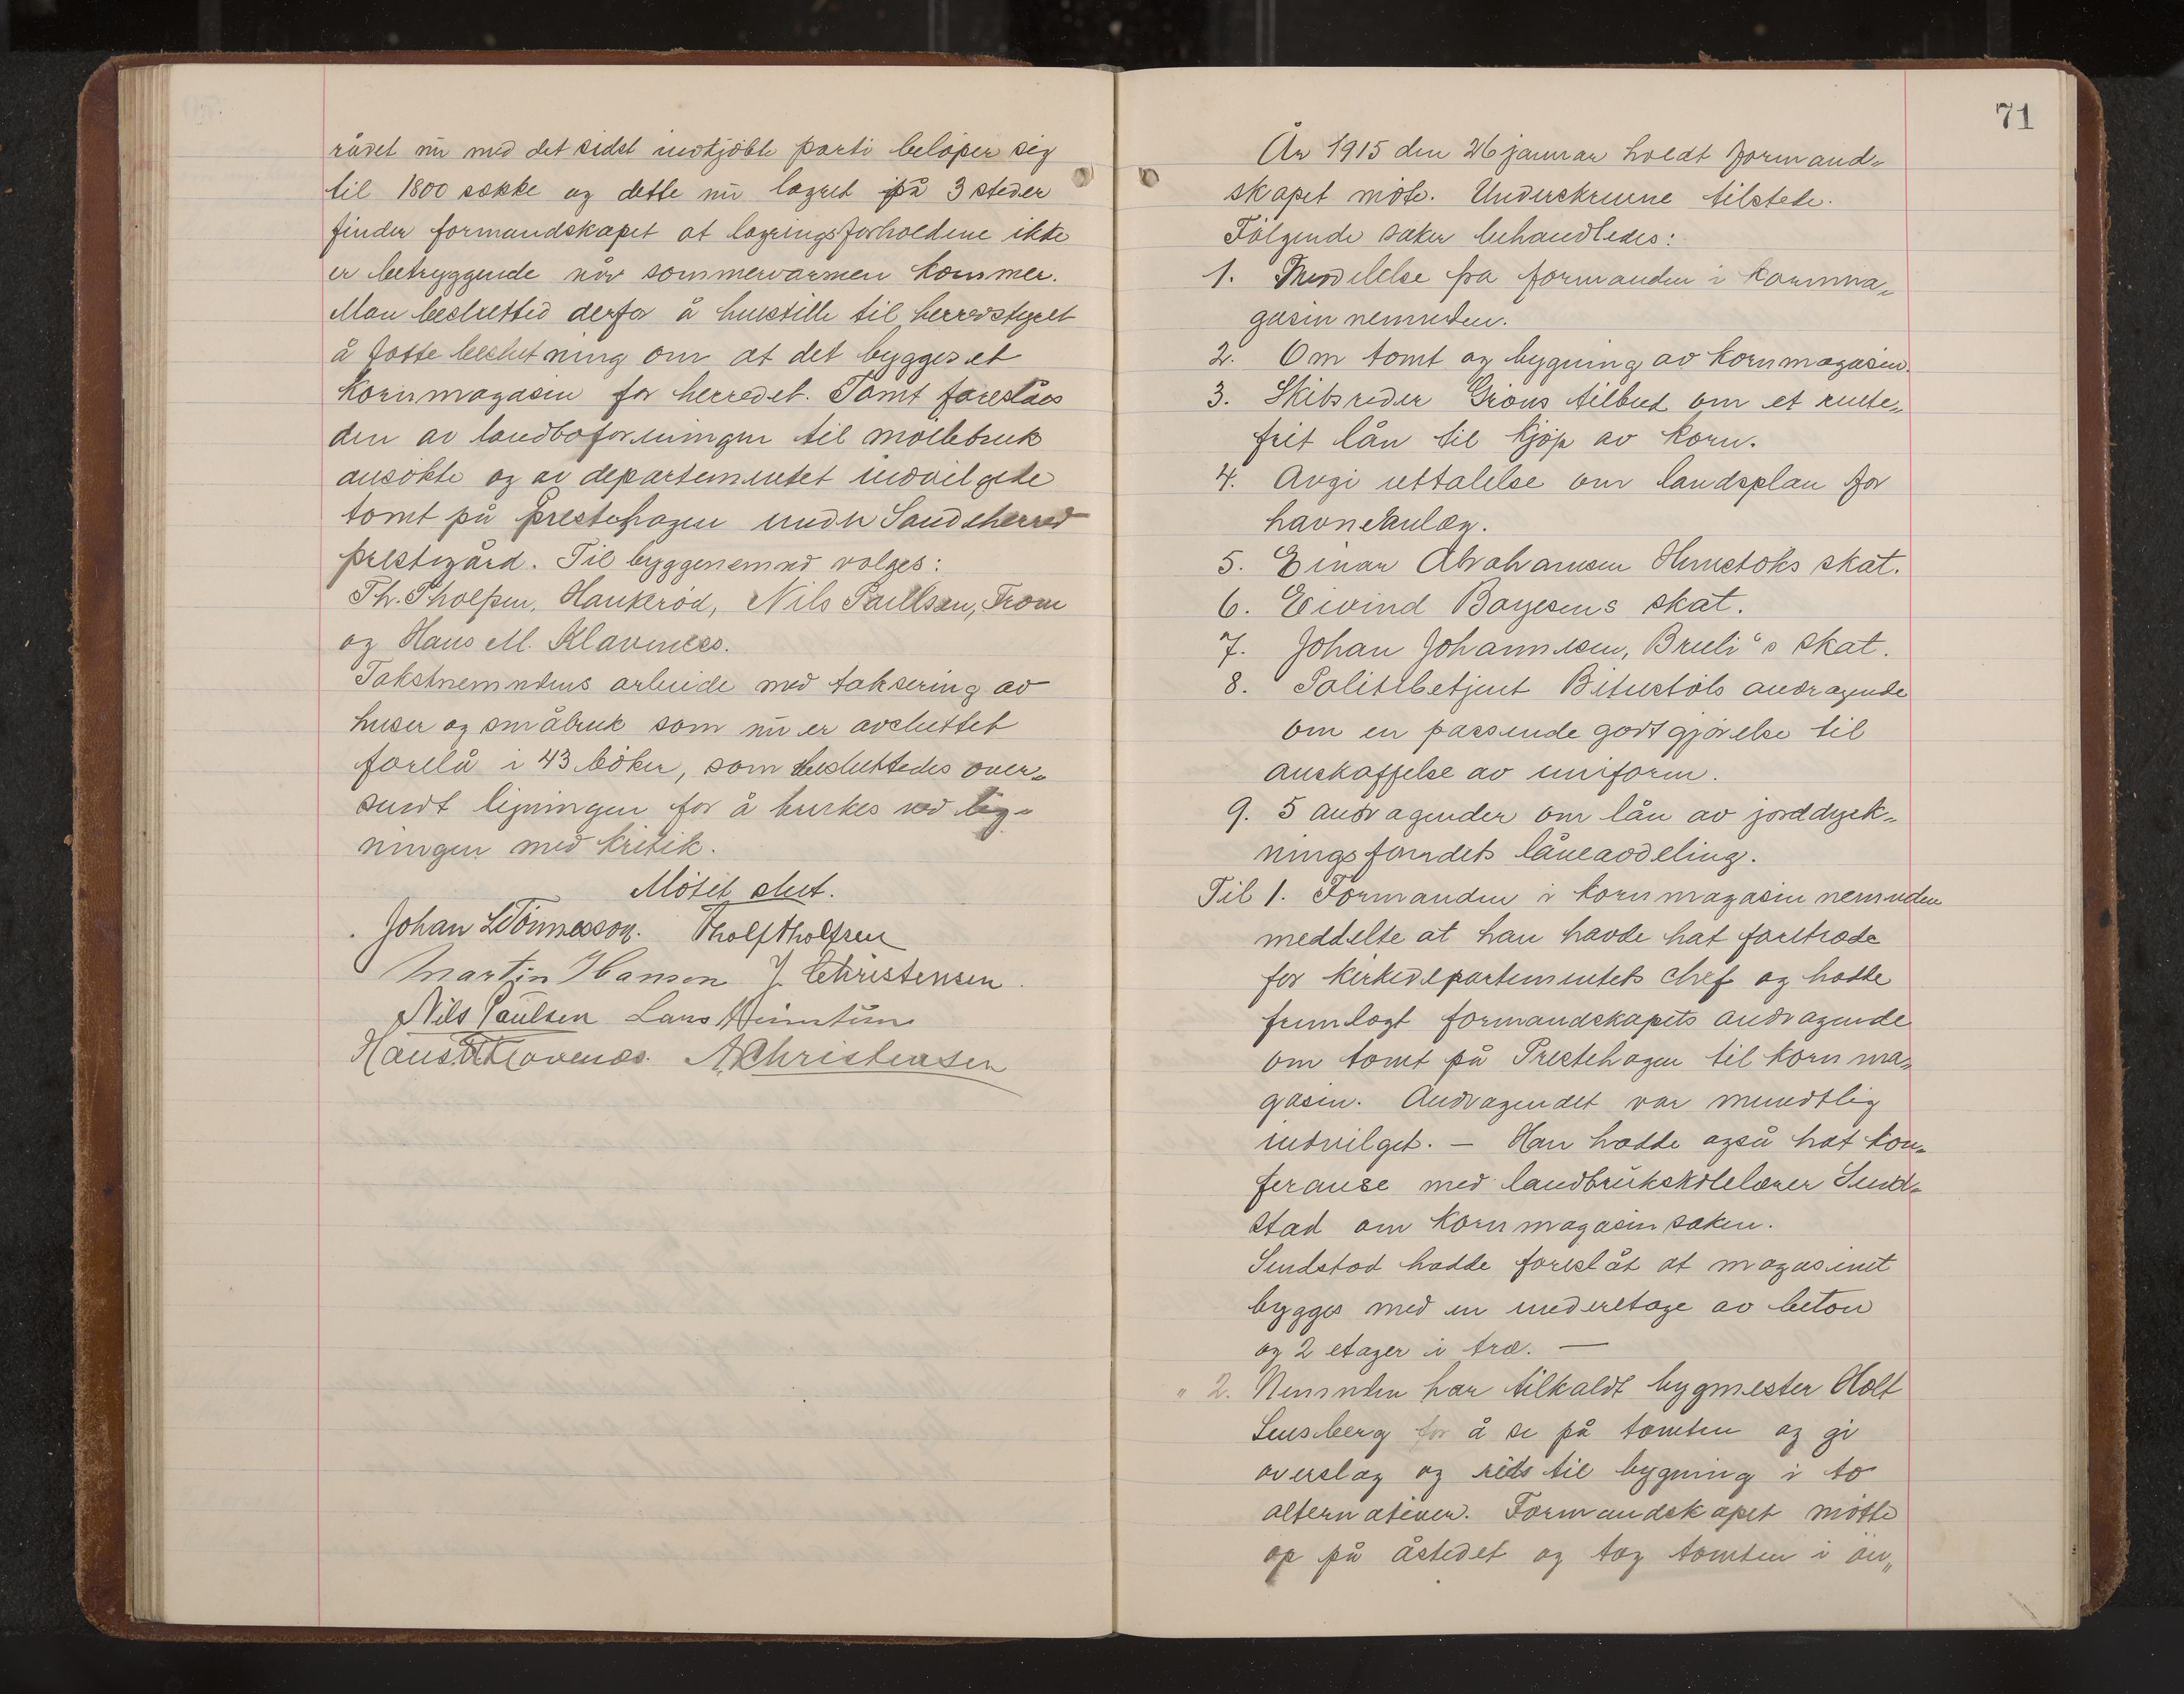 rådet nu med det sidst indkjöbte parti belöper sig
til 1800 sække og dette nu lagret på 3 steder
finder formandskapet at lagringsforholdene ikke
er betryggende når sommervarmen kommer.
Man beslutted derfor å henstille til herredstyret
å fatte beslutning om at det bygges et
kornmagasin for herredet. Tomt foreslåes
den av landboforeningen til möllebruk
ansökte og av departementet indvilgede
tomt på prestehagen under Sandeherred
prestegård. Til byggenemnd valges:
Th. Tholfsen, Haukeröd, Nils Paulsen, From
og Hans M. Klaveness.
Takstnemndens arbeide med taksering av
huser og småbruk som nu er avsluttet
forelå i 43 böker, som besluttedes over-
sendt ligningen for å brukes ved lig-
ningen med kritik.
Mötet slut.
Johan L Tönnesson. Tholf Tholfsen
Martin Hanson J. Christensen.
Nils Paulsen Lars
Hans M Klavenes. A. Christensen
71
År 1915 den 26 januar holdt formand-
skapet möte. Underskrevne tilstede.
Fölgende saker behandledes:
1. Meddelelse fra formanden i kornma-
gasinnemnden.
2. Om tomt og bygning av kornmagasin.
3. Skibsreder Gröns tilbud om et rente-
frit lån til kjöp av korn.
4. Avgi uttalelse om landsplan for
havneanlæg.
5. Einar Abrahamsen Hunstoks skat.
6. Eivind Bayesens skat.
7. Johan Johannesen, Brueli's skat.
8. Politibetjent andragende
om en passende godtgjörelse til
anskaffelse av uniform.
9. 5 andragender om lån av jorddyrk-
ningsfondets låneavdeling.
Til 1. Formanden i kornmagasin nemnden
meddelte at han havde hat foretræde
for kirkedepartementets chef og hadde
fremlagt formandskapets andragende
om tomt på Prestehagen til kornma-
gasin. Andragendet var mundtlig
indvilget. — Han hadde også hat kon-
feranse med landbrukskolelærer Sund-
stad om kornmagasinsaken.
Sundstad hadde foreslåt at magasinet
bygges med en underetage av beton
og 2 etager i træ. —
" 2. Nemnden har tilkaldt bygmester Holt
for å se på tomten og gi
overslag og rids til bygning i to
alternativer. Formandskapet mötte
op på åstedet og tog tomten i öie„